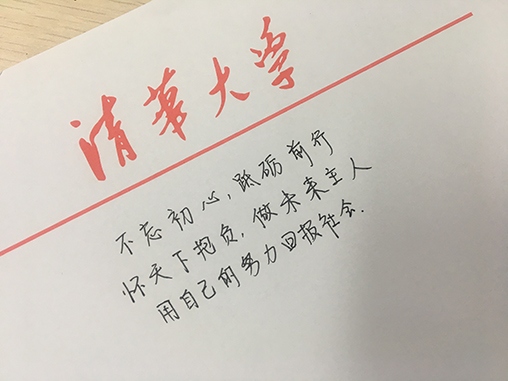 清华大学
不忘初心，砥砺前行
怀天下抱负，做未来主人
用自己的努力回报社会.